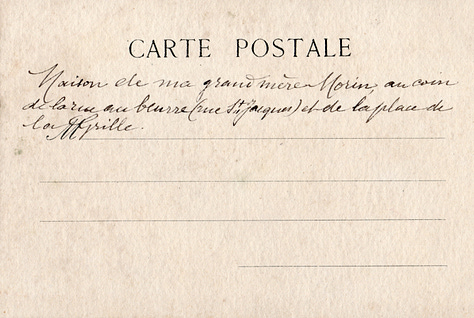 CARTE POSTALE
Maison de ma grand mère Morin, au coin
de la rue au beurre (rue St Jacques) et de la place de
la Grille.